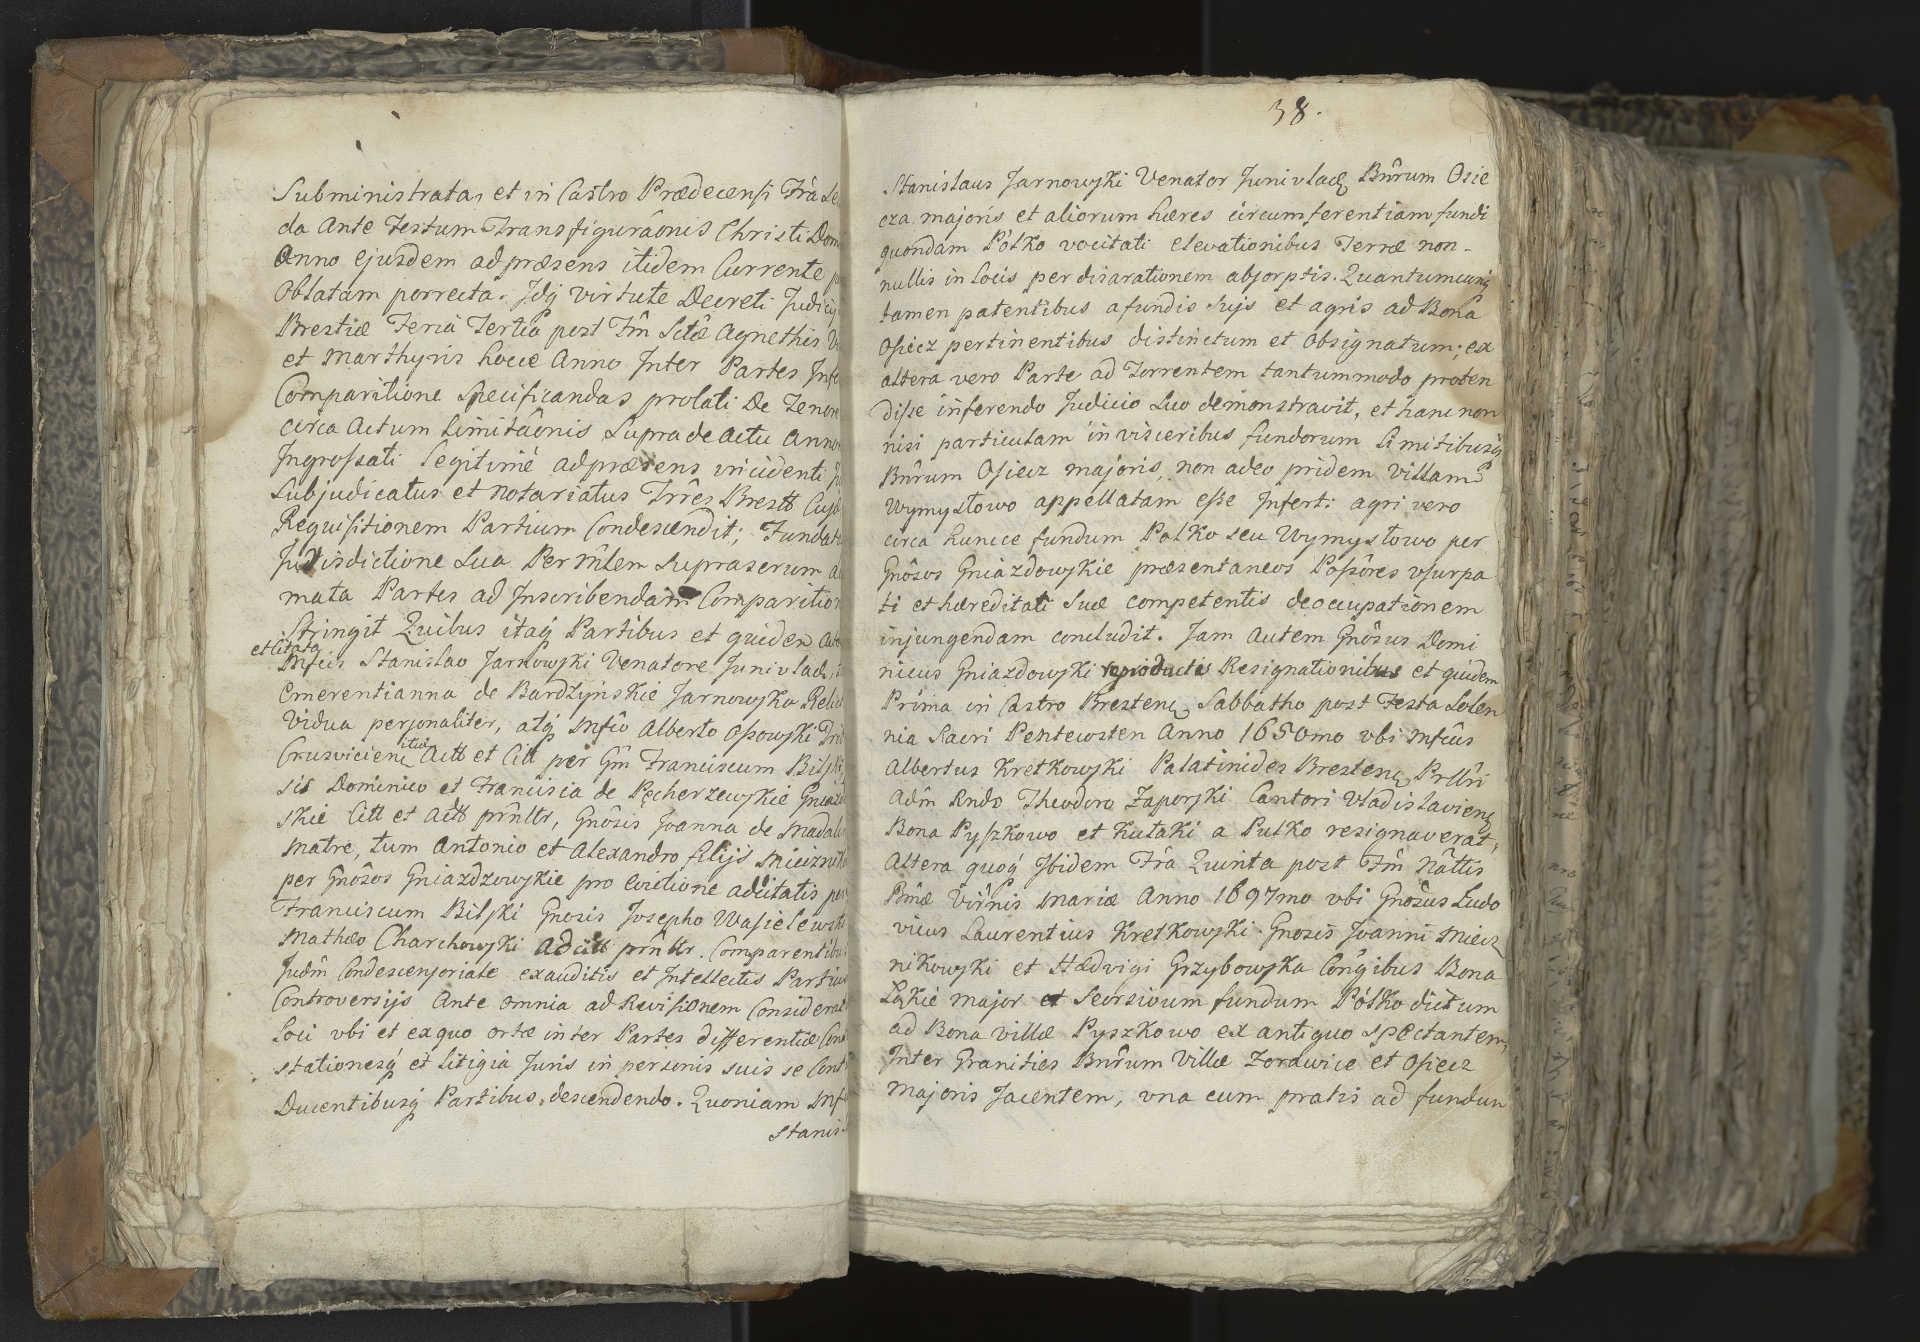 Subministrata, et in Castro Prædecensi Frâ Se
da Ante Festum Transfigurâonis Christi Dom
Anno Ejusdem ad præsens itidem Currente
Oblatam porrectâ. Idq virtute Decreti Judicij
Brestiæ Feriâ Tertia post Fm̂ Sctæ Agnethis V
et Marthyris hocce Anno Inter Partes Infe
Comparitione Specificandas prolati De Tenore
circa Actum Limitâonis Supra de Actu Anno
Ingrossati Legitimè ad præsens incidenti
Subjudicatus et Notariatus Trr̂es Brestt Cuj
Requisitionem Partium Condescendit; Fundata
Jurisdictione Sua Per Mn̂lem Supraserum a
mata Partes ad Inscribendam Comparition
Stringit Quibus itaq Partibus et quidem Act
et Citata
Mfcis Stanislao Jarnowski Venatore Junivlad,
Emerentianna de Bardzyńskie Jarnowska Relic
Vidua personaliter, atq Mfĉo Alberto Ossowski Tri
Crusviciens Actt et Citt per Gm̂ Franciscum Bilski,
itid
sis Dominico et Francisca de Pęcherzewskie Gniazd
skie Citt et Actt prn̂ttr, Gnôsis Joanna de Madal
Matre, tum Antonio et Alexandro filijs Miecznik
per Gnôsos Gniazdzowskie pro Evictione adcitatis per
Franciscum Bilski Gnosis Josepho Wasielewski
Mathæo Charchowski adcitt prn̂ttr. Comparentibus
Judm̂ Condescensoriale exauditis et Intellectis Partium
Controversijs Ante omnia ad Revisionem Considerat
Loci vbi et ex quo ortæ inter Partes differentiæ Con
stationesq et Litigia Juris in personis suis se Cont
Ducentibusq Partibus, descendendo. Quoniam Mf
Stanis
38.
Stanislaus Jarnowski Venator Junivlads Bnr̂um Osie
cza majoris et aliorum hæres circumferentiam fundi
quondam Pólko vocitati elevationibus Terræ non-
nullis in Locis per disarationem absorptis. Quantumcunq
tamen patentibus a fundis Suis et agris ad Bona
Osiecz pertinentibus distinctum et obsignatum; ex
altera vero Parte ad Torrentem tantummodo proten
disse inferendo Judicio Suo demonstravit, et hanc non
nisi particulam in visceribus fundorum Limitibusq
Bnr̂um Osiecz majoris, non adeo pridem villam
Wymysłowo appellatam esse Infert: agri vero
circa huncce fundum Polko seu Wymysłowo per
Gnôsos Gniazdowskie præsentaneos Possôres vsurpa
ti et hæreditati Suæ competentis deoccupationem
injungendam concludit. Jam Autem Gnôsus Domi
nicus Gniazdowski reproductis Resignationibus et quidem
Prima in Castro Brestens Sabbatho post Festa Solen
nia Sacri Pentecosten Anno 1650mo vbi Mfĉus
Albertus Kretkowski Palatinides Brestens
Adm̂ Rndo Theodoro Zaporski Cantori Vladislaviens
Bona Pyszkowo et Kutaki a Pulko resignaverat,
Altera quoq Ibidem Frâ Quinta post Fm̂ Nâttis
Bmæ Virn̂is Mariæ Anno 1697mo vbi Gnôsus Ludo
vicus Laurentius Kretkowski Gnosis Joanni Miecz
nikowski et Hædvigi Grzybowska Côngibus Bona
Łąkie major et Seorsivum fundum Pólko dictum
ad Bona villæ Pyszkowo ex antiquo spectantem,
Inter Granities Bnr̂um Villæ Zorawice et Osiecz
Majoris Jacentem, vna cum pratis ad fundum